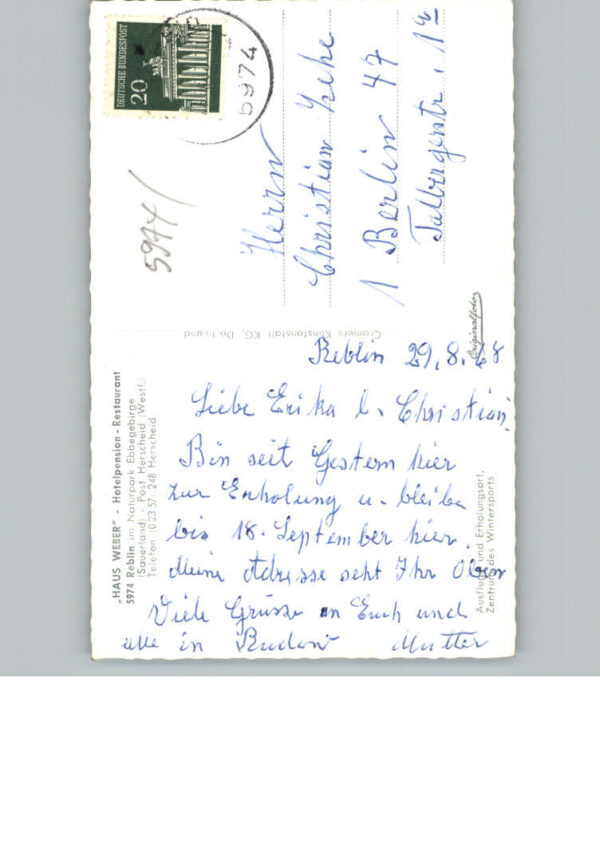 Reblin 29.8.68
Liebe Erika & Christian,
Bin seit Gestern hier
zur Erholung u. bleibe
bis 18. September hier.
Meine Adresse seht Ihr Oben
Viele Grüsse an Euch und
alle in Rudow Mutter
"HAUS WEBER" - Hotelpension - Restaurant
5974 Reblin im Naturpark Ebbegebirge
(Sauerland) - Post Herscheid (Westf.)
Telefon (0 23 57) 248 Herscheid
Ausflugs- und Erholungsort,
Zentrum des Wintersports
Cramers Kunstanstalt KG, Dortmund
Originalfoto
DEUTSCHE BUNDESPOST
20
5974
5974/
Herrn
Christian
1 Berlin 47
1a